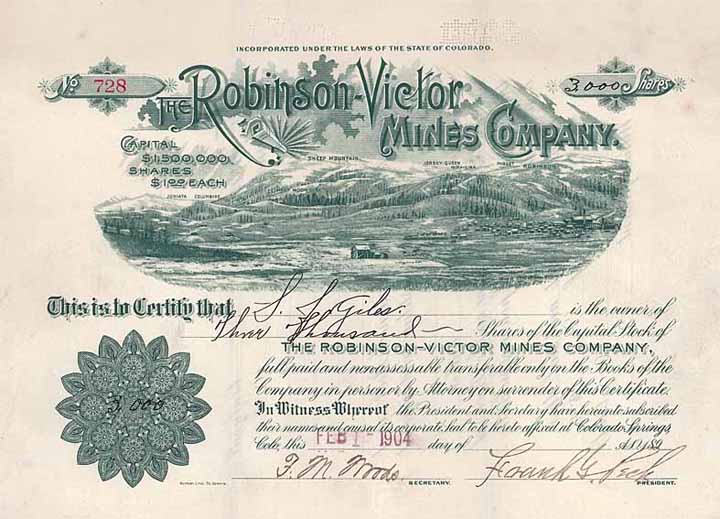 INCORPORATED UNDER THE LAWS OF THE STATE OF COLORADO.
No. 728
3,000 Shares
THE Robinson-Victor
MINES COMPANY.
CAPITAL
$1,500,000.
SHARES
$1.00 EACH.
SHEEP MOUNTAIN.
JERSEY QUEEN
ROBINSON
JUNIATA COLUMBINE
This is to Certify that S. L. Giles. is the owner of
Three Thousand Shares of the Capital Stock of
THE ROBINSON-VICTOR MINES COMPANY,
full paid and non-assessable transferable only on the Books of the
Company in person or by Attorney on surrender of this Certificate.
In Witness Whereof the President and Secretary have hereunto subscribed
their names and caused its corporate Seal to be hereto affixed at Colorado Springs,
Colo, this FEB 1 - 1904 day of A.D. 189
3,000
F. M. Woods
SECRETARY.
Frank G. Peck
PRESIDENT.